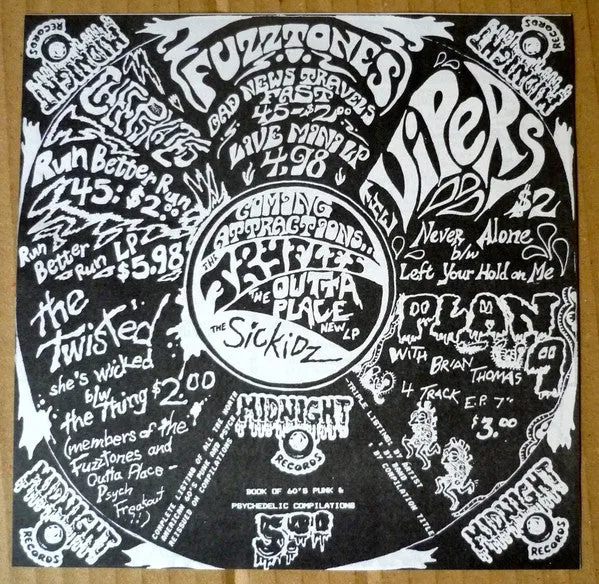 MIDNIGHT
RECORDS
MIDNIGHT
RECORDS
FUZZTONES
BAD NEWS TRAVELS
FAST
45-$2.00
LIVE MINI LP
4.98
Run Better Run
45: $2.00
Run
Better
Run LP
$5.98
VIPERS
$2
Never Alone
b/w
Left Your Hold on Me
COMING
ATTRACTIONS..
THE
TRYFLES
THE OUTTA
PLACE
NEW LP
THE SICKIDZ
the
Twisted
she's wicked
b/w
the Thing $2.00
(members of the
Fuzztones and
Outta Place -
Psych
Freakout!!)
PLAN 9
WITH BRIAN
THOMAS
4 TRACK E.P. 7"
$3.00
MIDNIGHT
RECORDS
COMPLETE LISTING OF ALL THE NORTH
AMERICAN 60'S PUNK AND PSYCH
REISSUES OF COMPILATIONS
TRIPLE LISTING: BY ARTIST
BY SONG
BY COMPILATION TITLE
BOOK OF 60'S PUNK &
PSYCHEDELIC COMPILATIONS
MIDNIGHT
RECORDS
MIDNIGHT
RECORDS